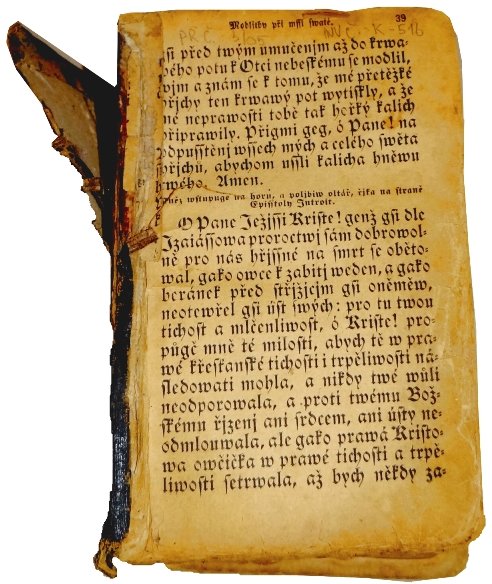 Modlitby při mssi swaté. 39
PRC-165 NVČ-K-516
gsi před twým umučenjm až do krwa-
wého potu k Otci nebeskému se modlil,
wjm a znám se k tomu, že mé přetěžké
hřjchy ten krwawý pot wytiskly, a že
mé neprawosti tobě tak hořký kalich
připrawily. Přigmi geg, ó Pane! na
odpusstěnj wssech mých a celého swěta
hřjchů, abychom ussli kalicha hněwu
twého. Amen.
Kněz wstupuge na horu, a poljbiw oltář, řjka na straně
Episstoly Introit.
O Pane Ježjssi Kriste! genž gsi dle
Izaiássowa proroctwj sám dobrowol-
ně pro nás hřjssné na smrt se oběto-
wal, gako owce k zabitj weden, a gako
beránek před střjžjcjm gsi oněměw,
neotewřel gsi úst swých: pro tu twou
tichost a mlčenliwost, ó Kriste! pro-
půgč mně té milosti, abych tě w pra-
wé křesťanské tichosti i trpěliwosti ná-
sledowati mohla, a nikdy twé wůli
neodporowala, a proti twému Bož-
skému řjzenj ani srdcem, ani ústy ne-
odmlouwala, ale gako prawá Kristo-
wa owčička w prawé tichosti a trpě-
liwosti setrwala, až bych někdy za-